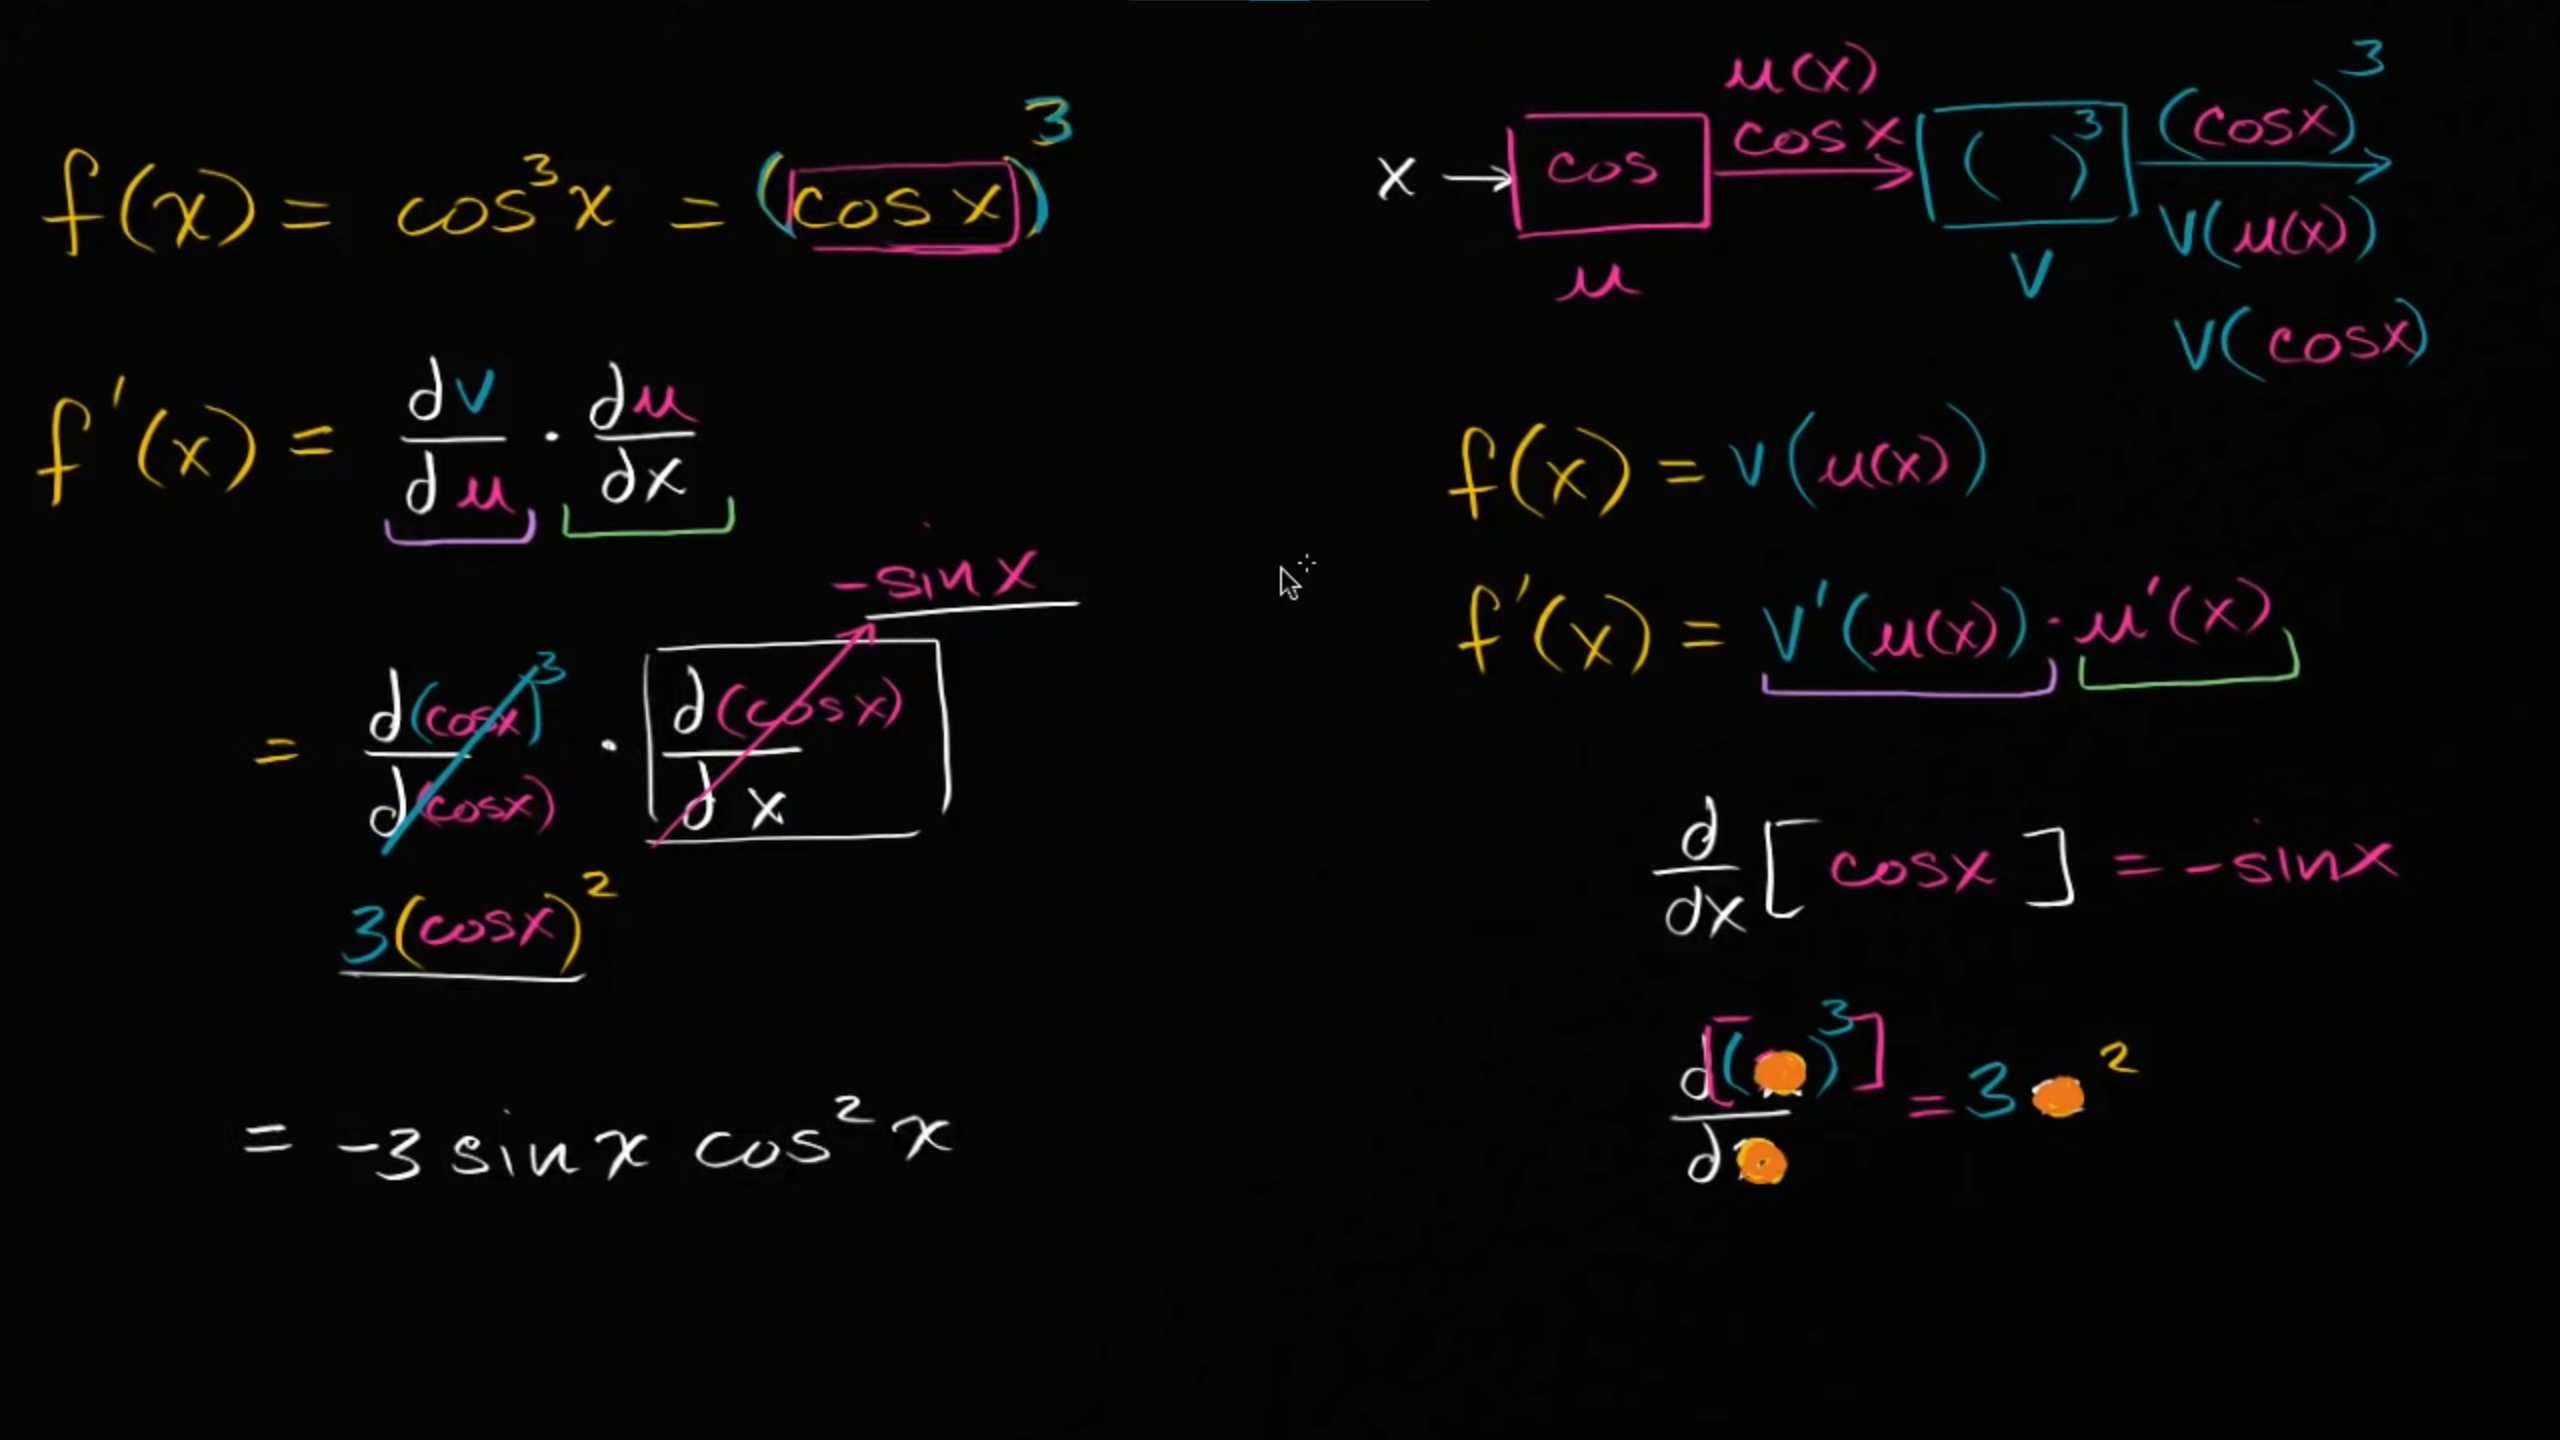 f(x) = cos³x = (cos x)³
f'(x) = dv/du · du/dx
= d(cosx)³/d(cosx) · d(cosx)/dx
-sin x
3(cosx)²
= -3 sin x cos² x
x → cos → ( )³ →
u(x)
cos x
(cosx)³
u
v
v(u(x))
v(cosx)
f(x) = v(u(x))
f'(x) = v'(u(x)) · u'(x)
d/dx [cosx] = -sinx
d[( )³]/d = 3 ²